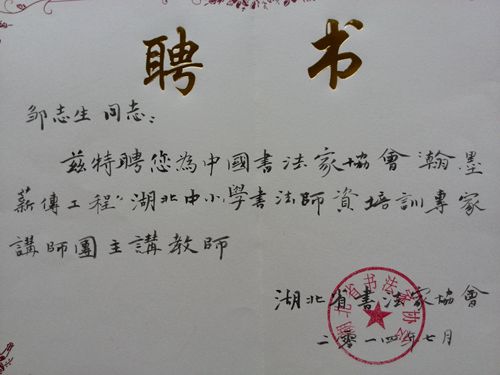 聘书
邹志生同志：
兹特聘您為中國書法家協會瀚墨
薪傳工程"湖北中小學書法師資培訓專家
講師團主講教師
湖北省書法家協會
湖北省书法家协会
二零一四年七月